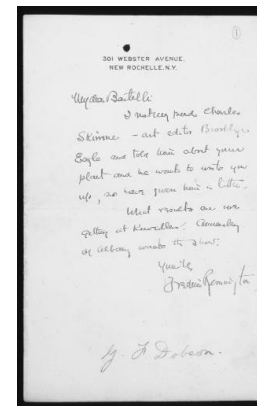 ①
301 WEBSTER AVENUE,
NEW ROCHELLE, N.Y.
My dear Bertelli
I met my friend Charles
Skinner - art editor Brooklyn
Eagle and told him about your
plant and he wants to write you
up, so have given him a letter.
What results are we
getting at Knoedlers.
of Albany wants the show.
Yours
Frederic Remington
G. F. Dobson.